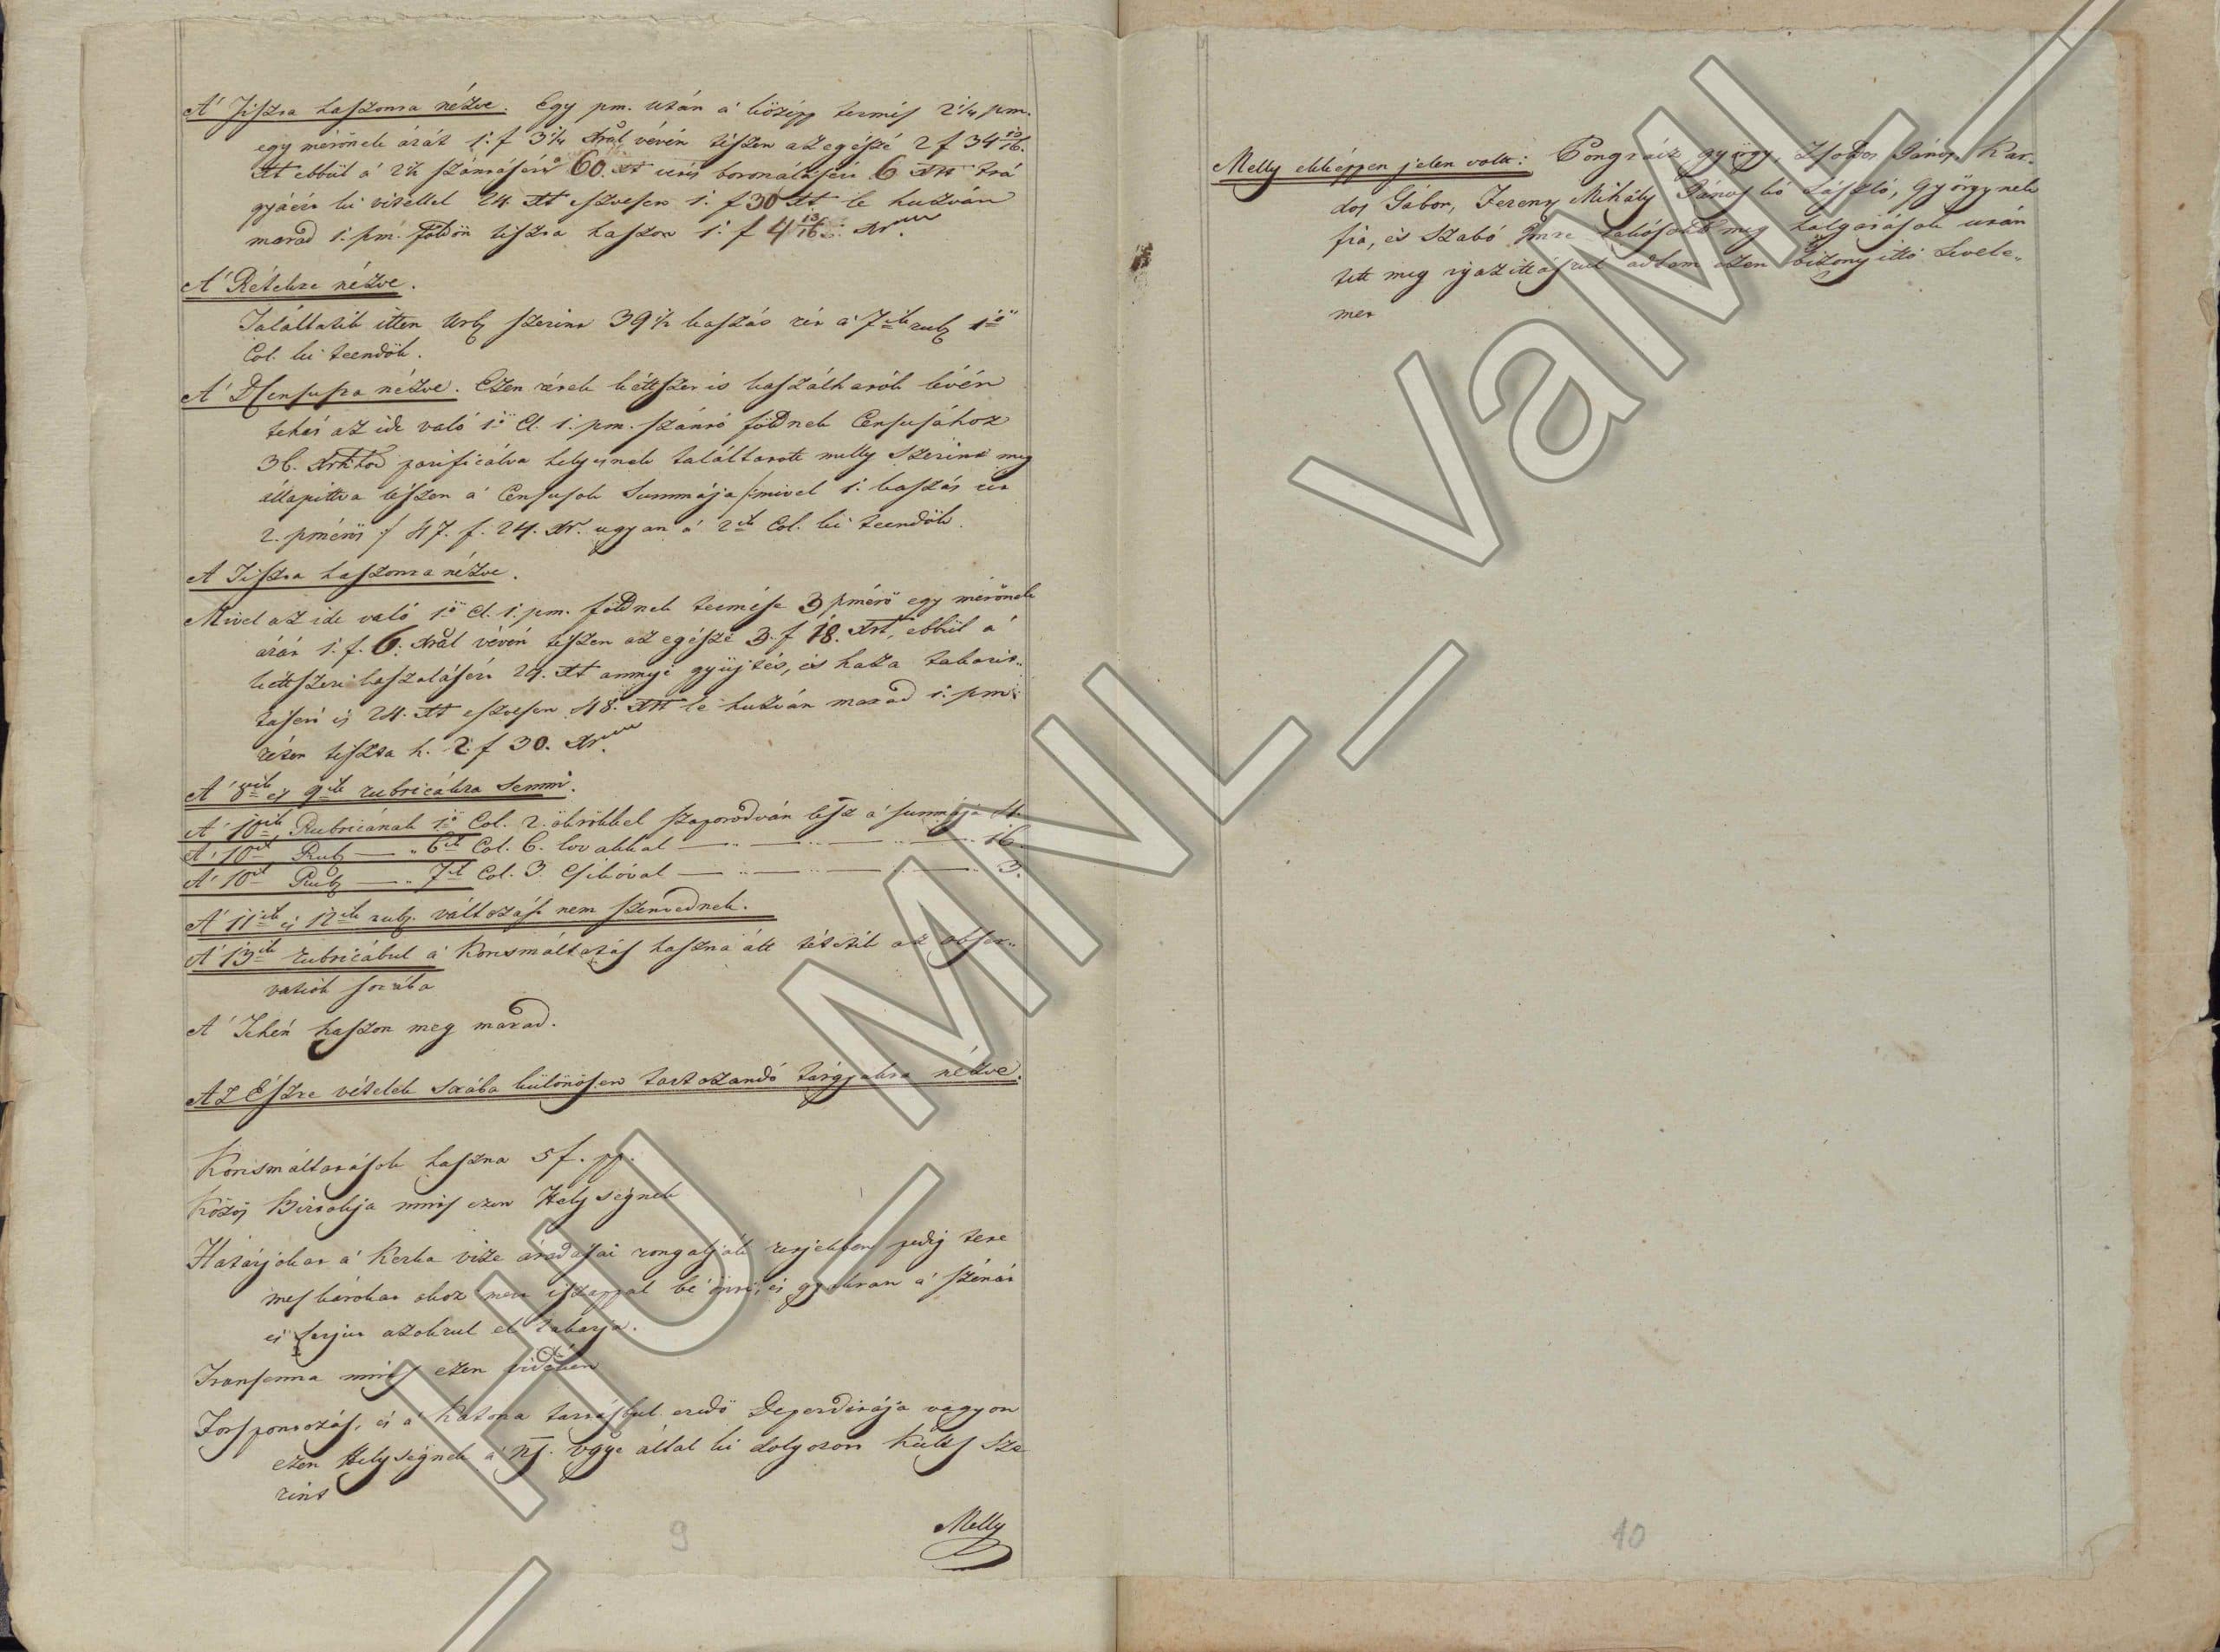 A' Tiszta haszonra nézve. Egy pm. után a' középp termés 2 1/4 pm.
egy mérőnek árát 1. f 3 1/4 Xrál vévén tészen az egészé 2 f 34 13/16.
Xt ebbül a' szántásért 60. Xt vetés boronálásért 6 Xrt trá
gyáért ki vitellel 24. Xt eszvesen 1. f 30 Xt le huzván
marad 1. pm. földön tiszta haszon 1. f 4 13/16. Xr.
A' Rétekre nézve.
Találtatik itten Urb. szerint 39 1/2 kaszás rét a' 7ik rub. 1ső
Col. ki teendők.
A' Censusra nézve. Ezen rétek kéttszer is kaszálhatók lévén
tehát az ide való 1ső Cl. 1. pm. szántó földnek Censusához
36. Xrkkal parificálva helyesnek találtatott melly szerint meg
állapittva tészen a' Censusok Summája /:mivel 1. kaszás rét
2. pmérős:/ 47. f. 24. Xr. ugyan a' 2ik Col. ki teendők.
A Tiszta haszonra nézve.
Mivel az ide való 1ső Cl. 1. pm. földnek termése 3 pmérő egy mérőnek
árát 1. f. 6. Xrál vévén tészen az egészé 3. f 18. Xrt, ebbül a'
kettszeri kaszalásért 24. Xt annyi gyüjtés, és haza takarit..
tásert is 24. Xt eszvesen 48. Xrt le huzván marad 1. pm.
réten tiszta h. 2. f 30. Xr.
A' 8ik és 9ik rubricákra semmi.
A' 10ik Rubricának 1ső Col. 2. ökrökkel szaporodván lész a' summája
A' 10ik Rub — .. 6ik Col. 6. lovakkal — .. — .. — .. — 16.
A' 10ik Rub — .. 7ik Col. 3. Csikóval — .. — .. — .. — 3.
A' 11ik és 12ik rub. változást nem szenvednek.
A' 13ik rubricábul a' Korcsmáltatás haszna átt tétetik az obser..
vatiók sorába
A' Tehén haszon meg marad.
AZ Észre vételek sorába különösen tartozandó tárgyakra nézve.
Korcsmáltatások haszna 5 f. pp.
Közös Birtokja nints ezen Helységnek
Határjokat a' Kerka vize áradásai rongalják retjekben pedig tete
mes károkat okoz mert iszappal bé önti, és gyakran a' szénát
és sarjut azokrul el takarja.
Transenna nints ezen vidéken
Forspontozás, és a' Katona tartásbul eredő Deperditája vagyon
ezen Helységnek a' ns. vgye által ki dolgozott Kúlts sze
rint
Melly
9
Melly ekképpen jelen volt: Pongrácz györgy, Zsoldos János, Kar..
dos Gábor, Ferency Mihály János bó László, Györgynek
fia, és Szabó Imre lakósok meg halgatások után
tett meg igazittásrul adtam ezen bizonyittó Levele..
met
10
HU_MNL_VaML_